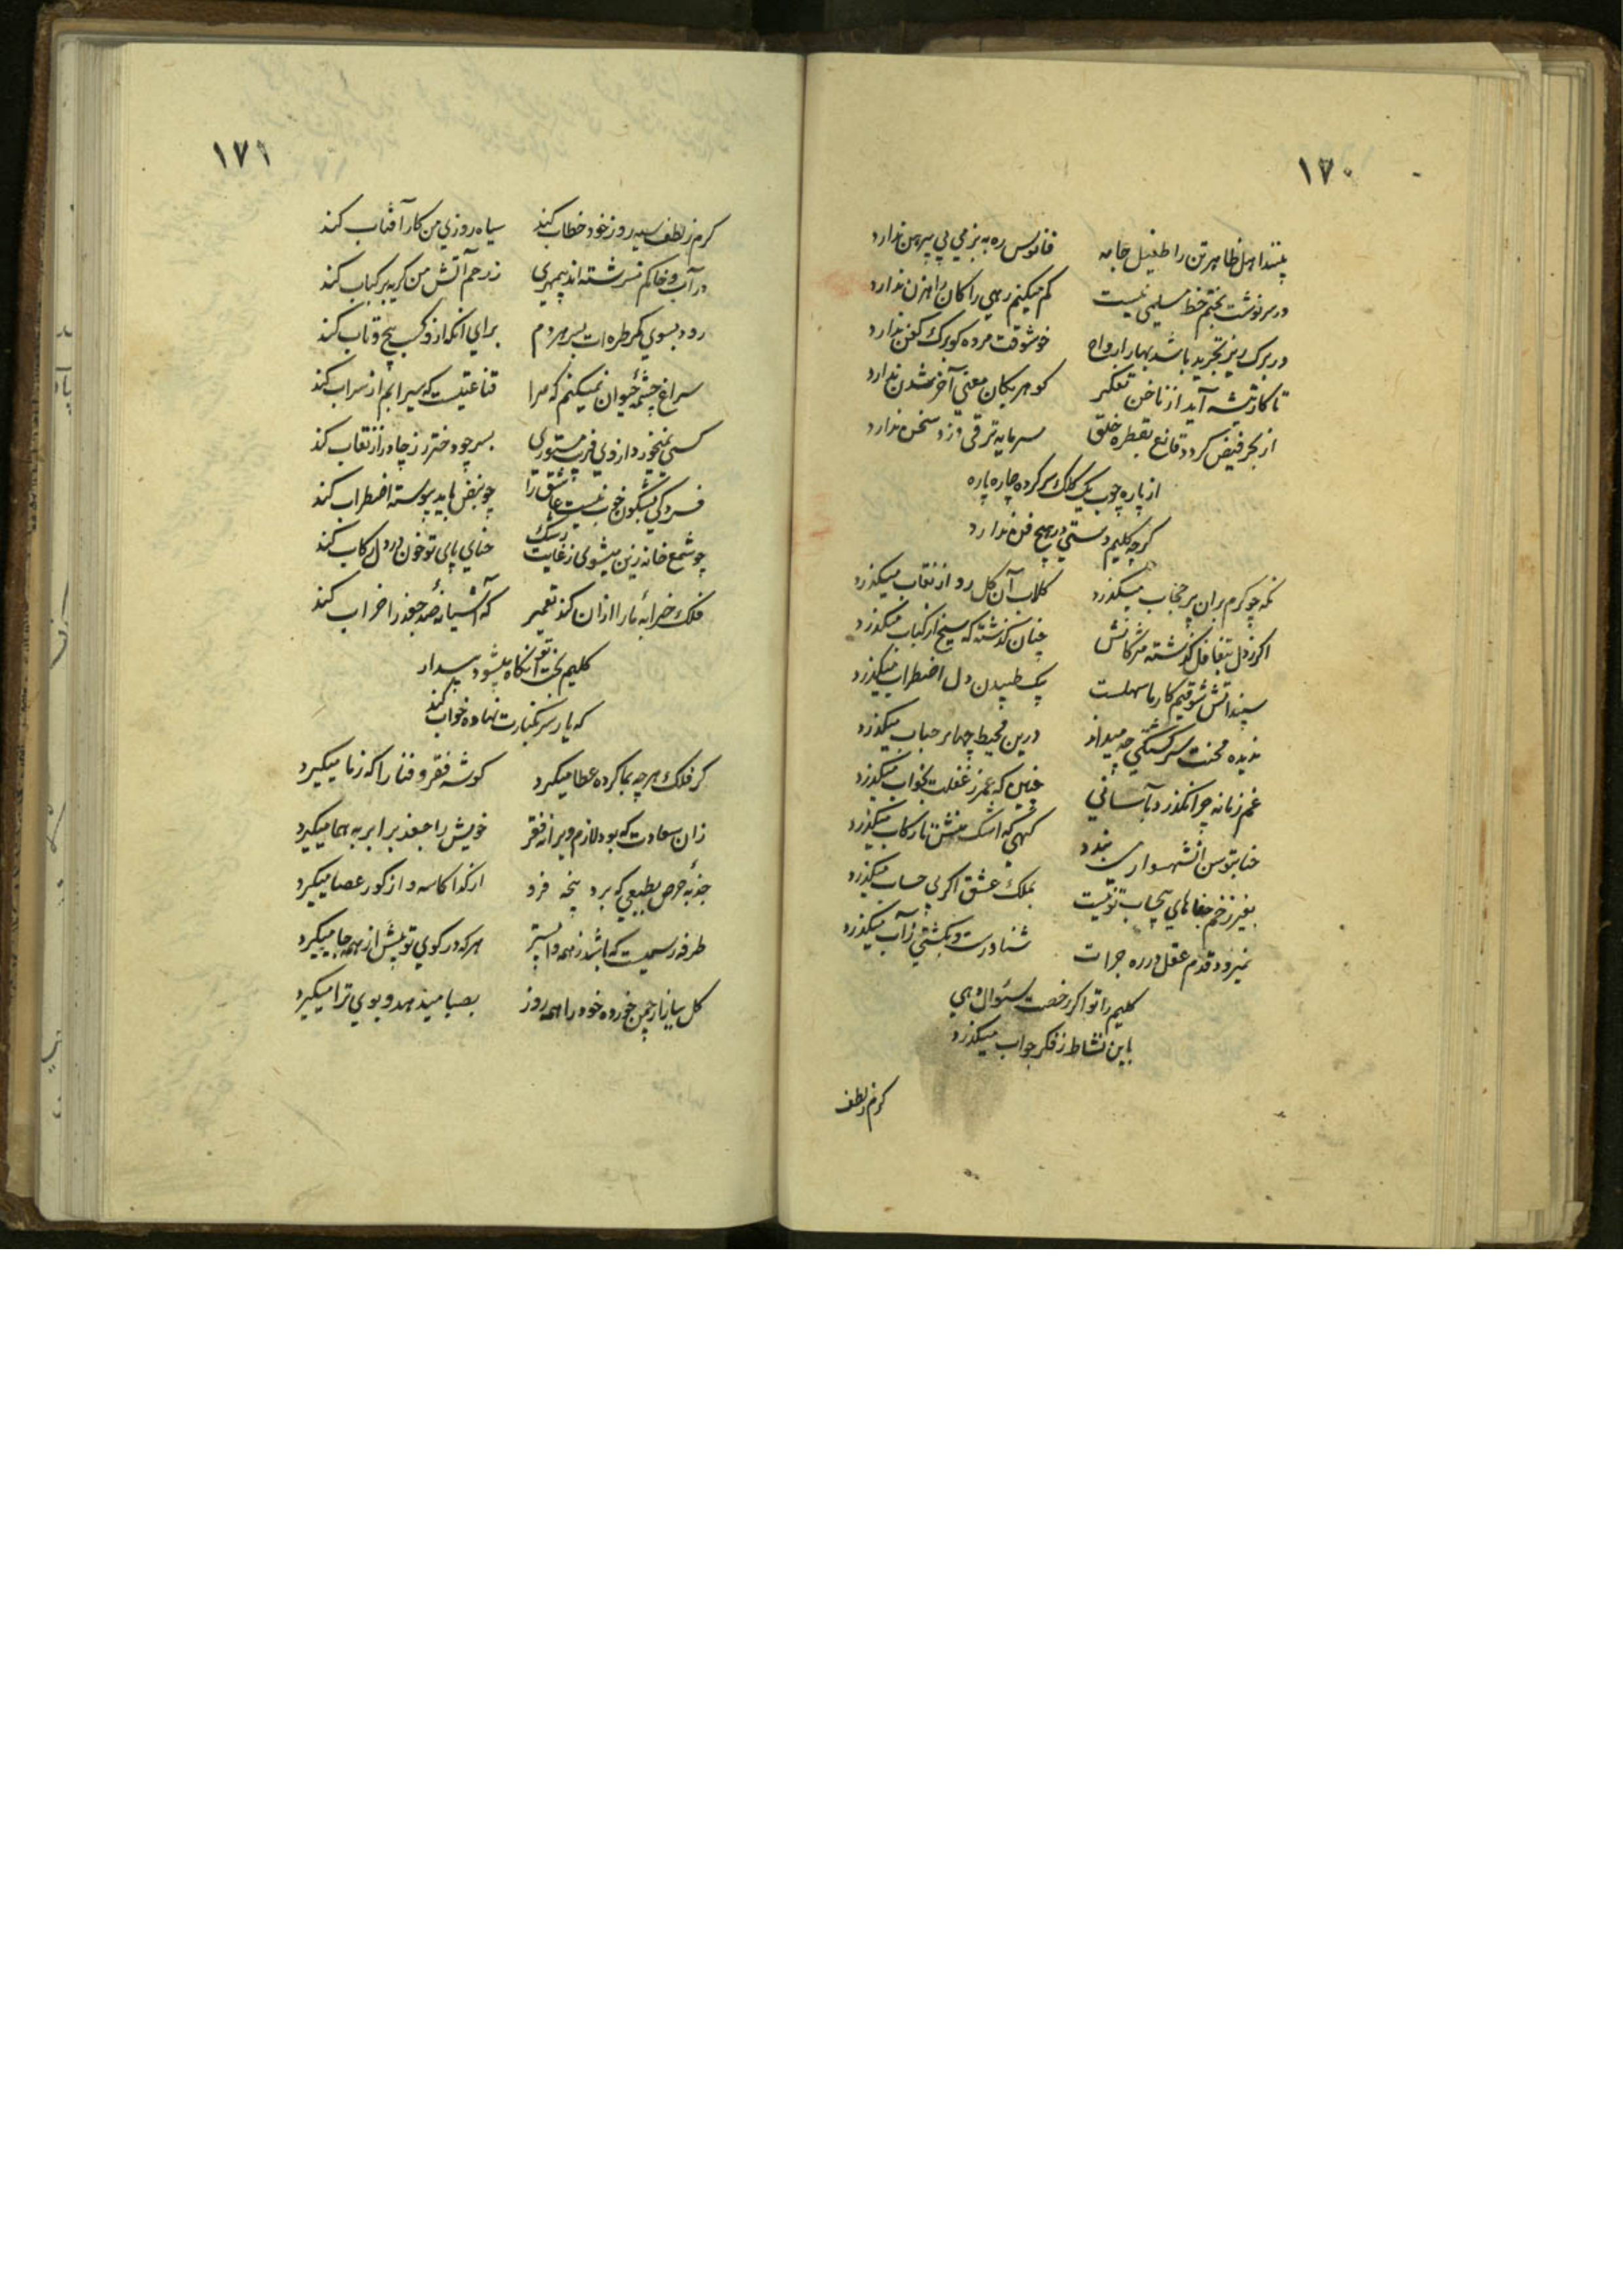 ۱۷۰
پسند اهل ظاهر تن را طفیل جامه فانوس ره به بزمی بی پیرهن ندارد
در سرنوشت بختم خط مسلمی نیست کم میکنم رهی را کان راهزن ندارد
در برک ریز تجرید باشد بهار ارواح خوشوقت مرده کو برک کفن ندارد
تا کار تیشه آید از ناخن تفکر کوهر بکان معنی آخر شدن ندارد
از بحر فیض کردد قانع بقطره خلق سرمایه ترقی دزد سخن ندارد
از پاره چوب یک کلک سر کرده چاره پاره
کرچه کلیم دستی در هیچ فن ندارد
نکه چو کرم بران پر حجاب میکذرد کلاب آن کل رو از نقاب میکذرد
اکر ز دل بتغافل کذشته مژکانش چنان کذشته که سیخ از کباب میکذرد
سپند آتش شوقیم کار ما سهلست بیک طپیدن دل اضطراب میکذرد
ندیده محنت سرکشتکی چه میداند درین محیط چها بر حباب میکذرد
غم زمانه چرا نکذرد بآسانی چنین که عمر ز غفلت بخواب میکذرد
حنا بتوسن آن شهسوار می بندد کهی که اشک منش تا رکاب میکذرد
بغیر زخم جفاهای بیحساب تو نیست بملک عشق اکر بی حساب میکذرد
نمیرود قدم عقل در ره جرات شناور است و بکشتی ز آب میکذرد
کلیم را تو اکر رخصت سئوال دهی
باین نشاط ز فکر جواب میکذرد
کرم ز لطف
۱۷۱
کرم ز لطف سیه روز خود خطاب کند سیاه روزی من کار آفتاب کند
در آب و خاکم نسرشته اند بیمهری ز رحم آتش من کریه بر کباب کند
رود بسوی کمر طره ات بسر هر دم برای آنکه ازو کسب پیچ و تاب کند
سراغ چشمه حیوان نمیکنم که مرا قناعتیست که سیرابم از سراب کند
کسی نمیخورد از وی فریب مستوری بسر چو دختر رز چادر از نقاب کند
فسردکی بشکون خوب نیست عاشق را چو نبض باید پیوسته اضطراب کند
چو شمع خانه زین میشوی ز غایت رشک حنای پای تو خون در دل رکاب کند
فلک خرابه ما را از ان کند تعمیر که آشیانه صد جغد را خراب کند
کلیم بخت تو آنکاه میشود بیدار
که یار سر بکنارت نهاده خواب کند
کر فلک هر چه بما کرده عطا میکیرد کوشه فقر و فنا را که ز ما میکیرد
زان سعادت که بود لازم ویرانه فقر خویش را جغد برابر به هما میکیرد
جذبه حرص بطبعی که برد پنجه فرو از کدا کاسه و از کور عصا میکیرد
طرفه رسمیست که باشد ز همه واپستر هر که در کوی تو پیش از همه جا میکیرد
کل ببازار چمن خورده خود را همه روز بصبا میدهد و بوی ترا میکیرد